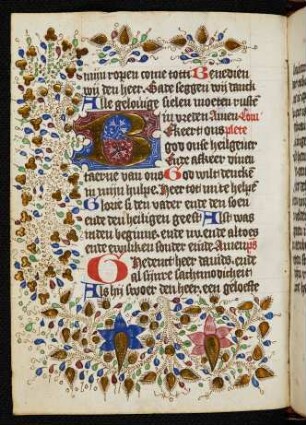 mijn ropen come tot ti Benedien
wij den heer. Gade seggen wij danck
Alle gelovige sielen moeten rusten
in vreden Amen Com
Bekeert ons plete
god onse heilgever
Ende afkeer dinen
taerne van ons God wilt dencke
in mijn hulpe. Heer tot mi te helpe
Glorie si den vader ende den soen
ende den heiligen geest Als't was
inden beginne ende nu. ende altoes
ende ewliken sonder ende. Amen ps
Ghedenct heer davids. ende
al sijnre sachtmodicheit
Als hij swoer den heer. een geloefte